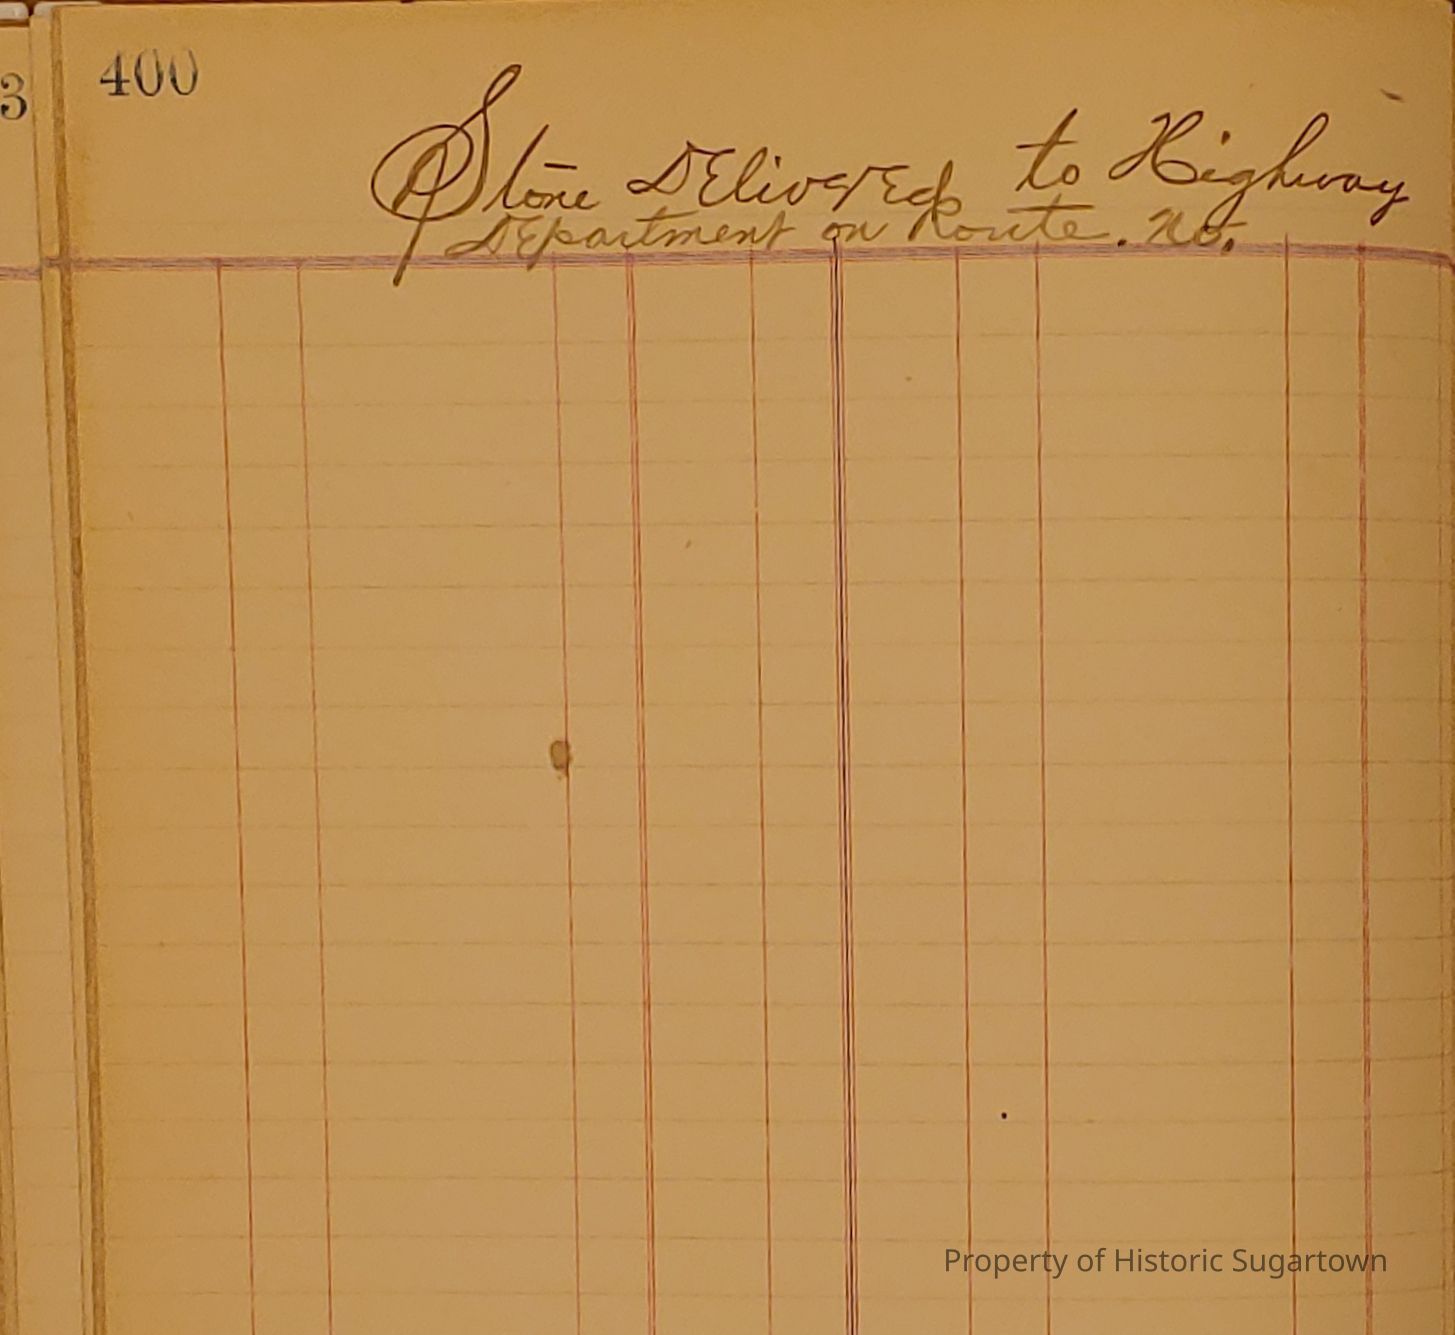 3
400
Stone Delivered to Highway
Department on Route. No.
Property of Historic Sugartown